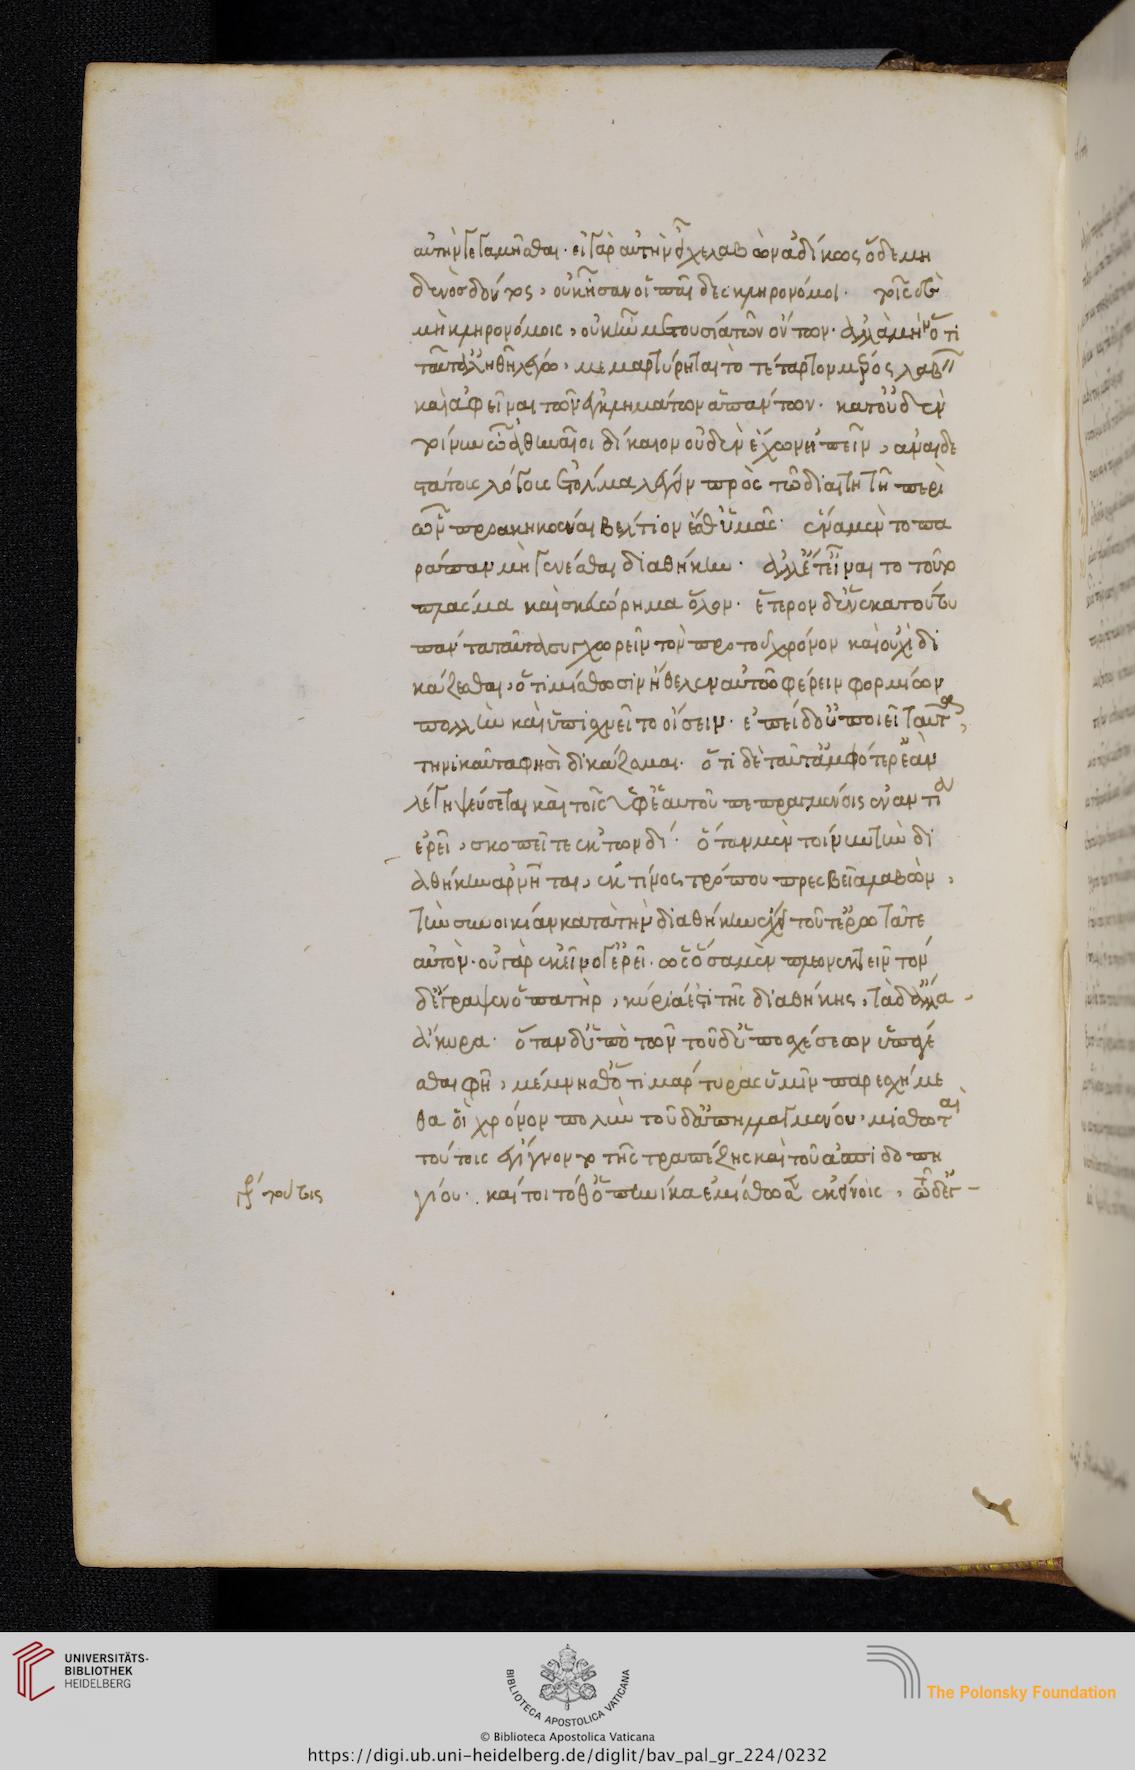 αὐτὴν γεγαμῆσθαι· εἰ γὰρ αὐτὴν εἶχε λαβὼν ἀδίκως ὅδε μη
δενὸς δόντος, οὐκ ἦσαν οἱ παῖδες κληρονόμοι· τοῖς δὲ
μὴ κληρονόμοις, οὐκ ἦν μετουσία τῶν ὄντων· ἀλλὰ μὴν ὅτι
ταῦτ' ἀληθῆ λέγω, μεμαρτύρηται τὸ τέταρτον μέρος λαβεῖν
καὶ ἀφεῖναι τῶν ἐγκλημάτων ἁπάντων· κατ' οὐδὲν
τοίνυν ὦ ἄνδρες ἀθηναῖοι δίκαιον οὐδὲν ἔχων εἰπεῖν, ἀναιδε
στάτους λόγους ἐτόλμα λέγειν πρὸς τῷ διαιτητῇ περὶ
ὧν προακηκοέναι βέλτιον ἐσθ' ὑμᾶς· ἕνα μὲν τὸ πα
ράπαν μὴ γενέσθαι διαθήκην· ἀλλ' ἔτ' εἶναι τοῦτο
πλάσμα καὶ σκευώρημα ὅλον· ἕτερον δ' ἕνεκα τούτου
πάντα ταῦτα συγχωρεῖν τὸν πρὸ τοῦ χρόνον καὶ οὐχὶ δι
κάζεσθαι, ὅτι μίσθωσιν ἤθελεν αὐτῷ φέρειν φορμίων
πολλὴν καὶ ὑπισχνεῖτο οἴσειν· ἐπειδὴ δ' οὐ ποιεῖ ταῦτα,
τηνικαῦτα φησὶ δικάζομαι· ὅτι δὲ ταῦτ' ἀμφότερ' ἐὰν
λέγη ψεύσεται καὶ τοῖς ὑφ' ἑαυτοῦ πεπραγμένοις ἐναντί
ἐρεῖ, σκοπεῖτε ἐκ τωνδί· ὅταν μὲν τοίνυν τὴν δι
αθήκην ἀρνῆται, ἐκ τίνος τρόπου πρεσβεῖα λαβὼν,
τὴν συνοικίαν κατὰ τὴν διαθήκην ἔχει τοῦτ' ἐρωτᾶτε
αὐτόν· οὐ γὰρ ἐκεῖνό γ' ἐρεῖ· ὡς ὅσα μὲν πλεονεκτεῖν τόν
δ' ἔγραψεν ὁ πατὴρ, κύρια ἐστὶ τῆς διαθήκης, τὰ δ' ἄλλα
ἄκυρα· ὅταν δ' ὑπὸ τῶν τοῦδ' ὑποσχέσεων ὑπάγε
σθαι φῇ, μέμνησθ' ὅτι μάρτυρας ὑμῖν παρεσχήμε
θα οἳ χρόνον πολὺν τοῦδ' ἀπηλλαγμένου, μισθωταὶ
τούτοις ἐγίγνοντο τῆς τραπέζης καὶ τοῦ ἀσπιδοπη
γίου· καίτοι τόθ' ὁπηνίκα ἐμίσθωσεν ἐκείνοις, τῷδ' ἐγ